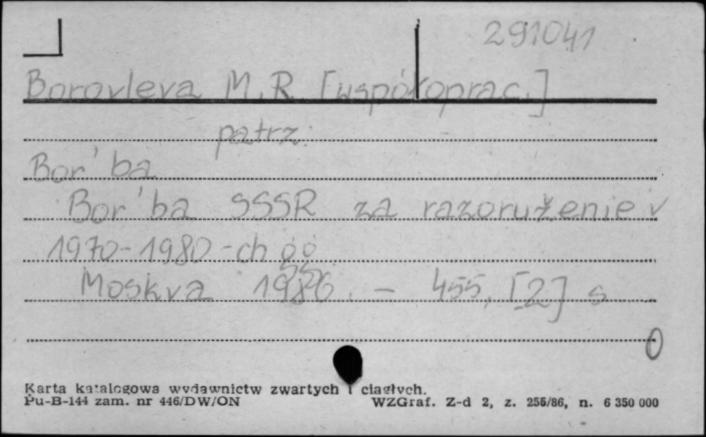 291041
Borovleva M. R [współoprac.]
patrz:
Bor'ba
Bor'ba SSSR za razoruženie v
1970-1980-ch gg.
Moskva 1986. - 455, [2] s
0
Karta katalogowa wydawnictw zwartych i ciągłych.
Pu-B-144 zam. nr 446/DW/ON WZGraf. Z-d 2, z. 256/86, n. 6 350 000